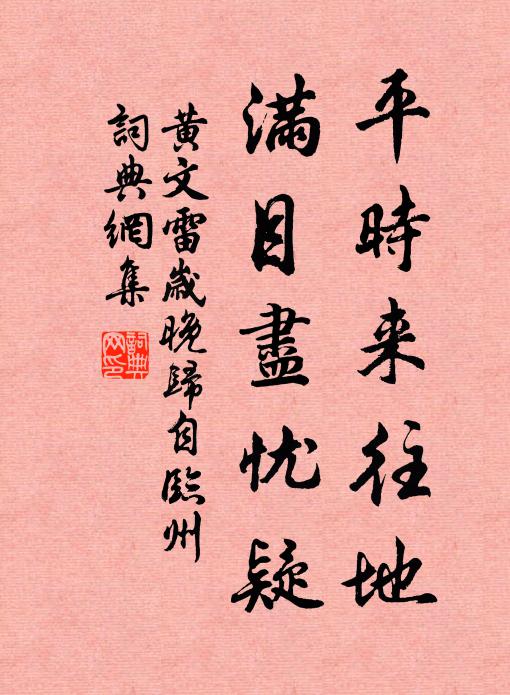 平時来往地
滿目盡忧疑
黄文雷歲晚歸自臨州
詞典網集
詞典网印